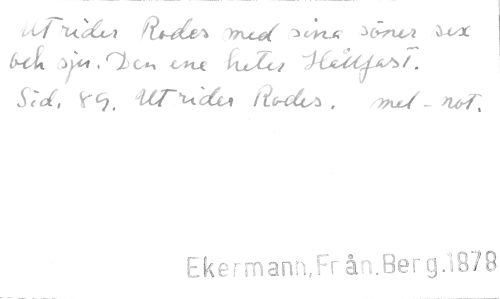 Ut rider Rodes med sina söner sex
och sju. Den ene heter Hållfast.
Sid. 89. Ut rider Rodes. mel-not.
Ekermann, Från. Berg. 1878